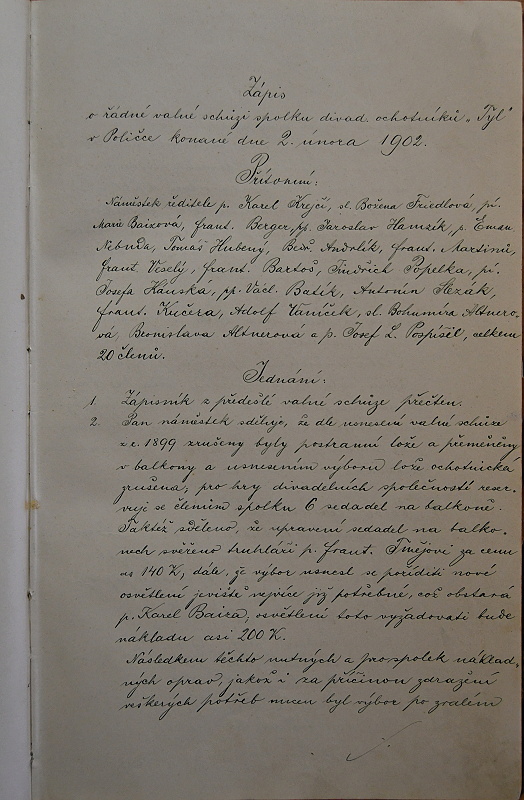 Zápis
o řádné valné schůzi spolku divad. ochotníků „Tyl"
v Poličce konané dne 2. února 1902.
Přítomni:
Náměstek ředitele p. Karel Krejčí, sl. Božena Friedlová, pí.
Marie Baizová, Frant. Berger, pp. Jaroslav Hamsík, p. Eman.
Nebuda, Tomáš Hubený, Bedř. Andrlík, Frant. Martinů,
Frant. Veselý, Frant. Bartoš, Jindřich Popelka, pí.
Josefa Hanská, pp. Václ. Batík, Antonín Slezák,
Frant. Kučera, Adolf Vaníček, sl. Bohumíra Altnero-
vá, Bronislava Altnerová a p. Josef L. Pospíšil, celkem
20 členů.
Jednání:
1. Zápisník z předešlé valné schůze přečten.
2. Pan náměstek sděluje, že dle usnesení valné schůze
z r. 1899 zrušeny byly postranní lože a přeměněny
v balkony a usnesením výboru lože ochotnická
zrušena; pro hry divadelních společností reser-
vuje se členům spolku 6 sedadel na balkoně.
Taktéž sděleno, že upravení sedadel na balko-
nech svěřeno truhláři p. Frant. za cenu
as 140 K, dále, že výbor usnesl se poříditi nové
osvětlení jeviště nejvíce již potřebné, což obstará
p. Karel Baiza; osvětlení toto vyžadovati bude
nákladu asi 200 K.
Následkem těchto nutných a pro spolek náklad-
ných oprav, jakož i za příčinou zdražení
veškerých potřeb nucen byl výbor po zralém